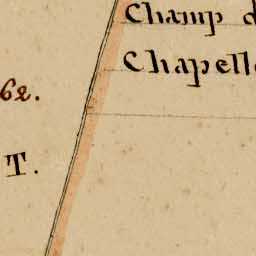 Champ d
Chapelle
62.
T.